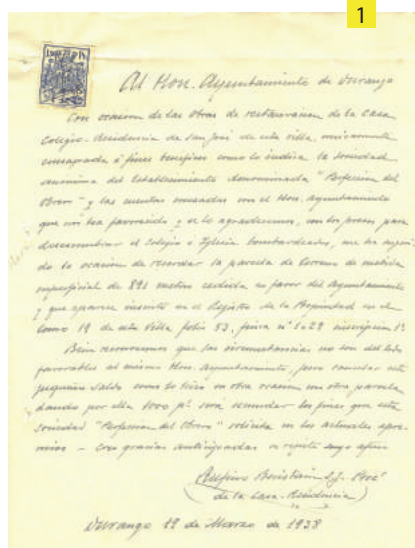 1
Al Hon. Ayuntamiento de Durango
Con ocasion de las obras de restauracion de la Casa
Colegio-Residencia de San José de esta villa, unicamente
consagrada á fines beneficos como lo indica la sociedad
anonima del Establecimiento denominada "Perfeccion del
Obrero" y las cuentas cruzadas con el Hon. Ayuntamiento
que nos ha favorecido y se lo agradecemos, con los presos para
descombrar el Colegio e Iglesia bombardeados, me ha sugeri-
do la ocasion de recordar la parcela de terreno de medida
superficial de 891 metros cedida en favor del Ayuntamiento
y que aparece inscrita en el Registro de la Propiedad en el
tomo 19 de esta Villa folio 53. finca nº inscripcion 1ª
Bien reconocemos que las circunstancias no son del todo
favorables al mismo Hon. Ayuntamiento, pero cancelar este
pequeño saldo como lo hizo en otra ocasion con otra parcela
dando por ella 1000 pts será secundar los fines que esta
sociedad "Perfeccion del Obrero" solicita en los actuales apre-
mios - Con gracias anticipadas se repite suyo afmo
Rufino Beristain S.J.
(de la Casa-Residencia)
Durango 19 de Marzo de 1938